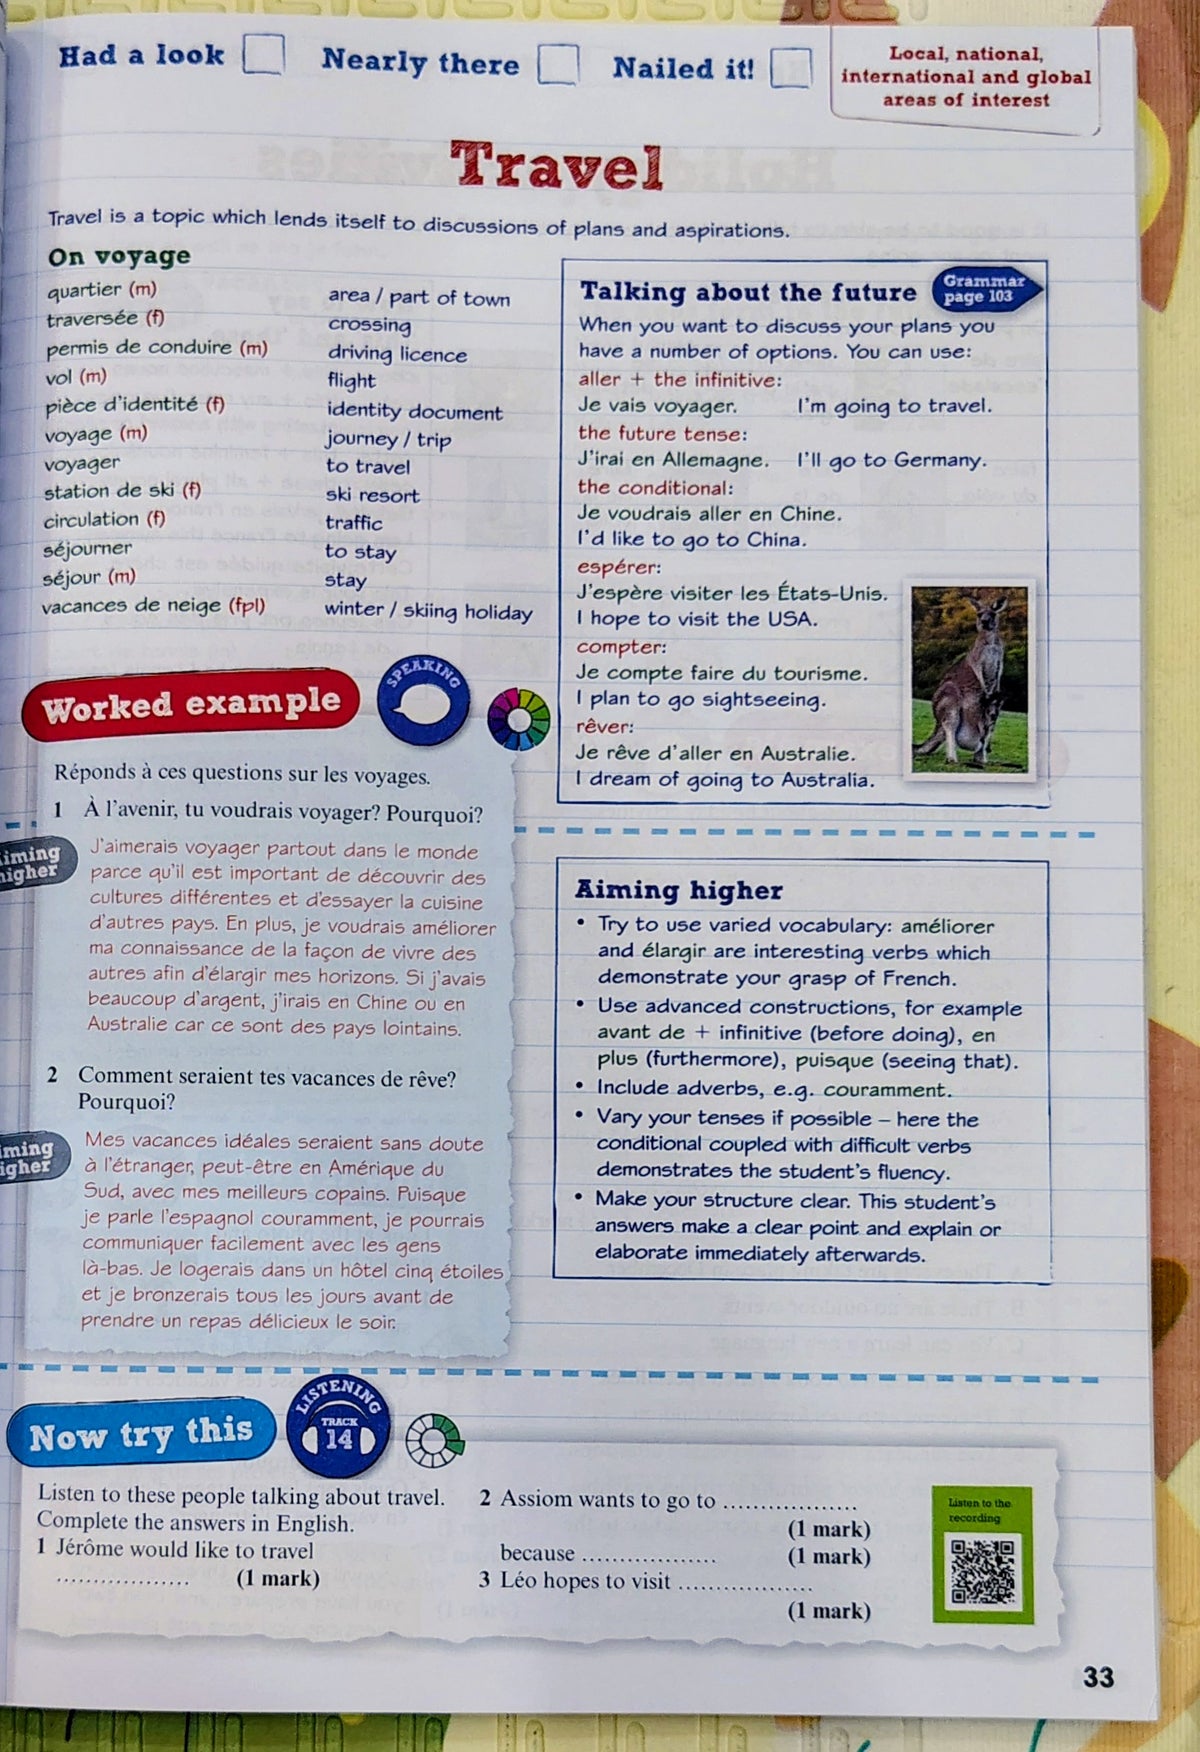 Had a look
Nearly there
Nailed it!
Local, national,
international and global
areas of interest
Travel
Travel is a topic which lends itself to discussions of plans and aspirations.
On voyage
quartier (m) area / part of town
traversée (f) crossing
permis de conduire (m) driving licence
vol (m) flight
pièce d'identité (f) identity document
voyage (m) journey / trip
voyager to travel
station de ski (f) ski resort
circulation (f) traffic
séjourner to stay
séjour (m) stay
vacances de neige (fpl) winter / skiing holiday
Talking about the future
Grammar
page 103
When you want to discuss your plans you
have a number of options. You can use:
aller + the infinitive:
Je vais voyager. I'm going to travel.
the future tense:
J'irai en Allemagne. I'll go to Germany.
the conditional:
Je voudrais aller en Chine.
I'd like to go to China.
espérer:
J'espère visiter les États-Unis.
I hope to visit the USA.
compter:
Je compte faire du tourisme.
I plan to go sightseeing.
rêver:
Je rêve d'aller en Australie.
I dream of going to Australia.
Worked example
SPEAKING
Réponds à ces questions sur les voyages.
1 À l'avenir, tu voudrais voyager? Pourquoi?
Aiming
higher
J'aimerais voyager partout dans le monde
parce qu'il est important de découvrir des
cultures différentes et d'essayer la cuisine
d'autres pays. En plus, je voudrais améliorer
ma connaissance de la façon de vivre des
autres afin d'élargir mes horizons. Si j'avais
beaucoup d'argent, j'irais en Chine ou en
Australie car ce sont des pays lointains.
2 Comment seraient tes vacances de rêve?
Pourquoi?
Aiming
higher
Mes vacances idéales seraient sans doute
à l'étranger, peut-être en Amérique du
Sud, avec mes meilleurs copains. Puisque
je parle l'espagnol couramment, je pourrais
communiquer facilement avec les gens
là-bas. Je logerais dans un hôtel cinq étoiles
et je bronzerais tous les jours avant de
prendre un repas délicieux le soir.
Aiming higher
• Try to use varied vocabulary: améliorer
and élargir are interesting verbs which
demonstrate your grasp of French.
• Use advanced constructions, for example
avant de + infinitive (before doing), en
plus (furthermore), puisque (seeing that).
• Include adverbs, e.g. couramment.
• Vary your tenses if possible – here the
conditional coupled with difficult verbs
demonstrates the student's fluency.
• Make your structure clear. This student's
answers make a clear point and explain or
elaborate immediately afterwards.
Now try this
LISTENING
TRACK
14
Listen to these people talking about travel.
Complete the answers in English.
1 Jérôme would like to travel
.................. (1 mark)
2 Assiom wants to go to ..................
(1 mark)
because .................. (1 mark)
3 Léo hopes to visit ..................
(1 mark)
Listen to the
recording
33